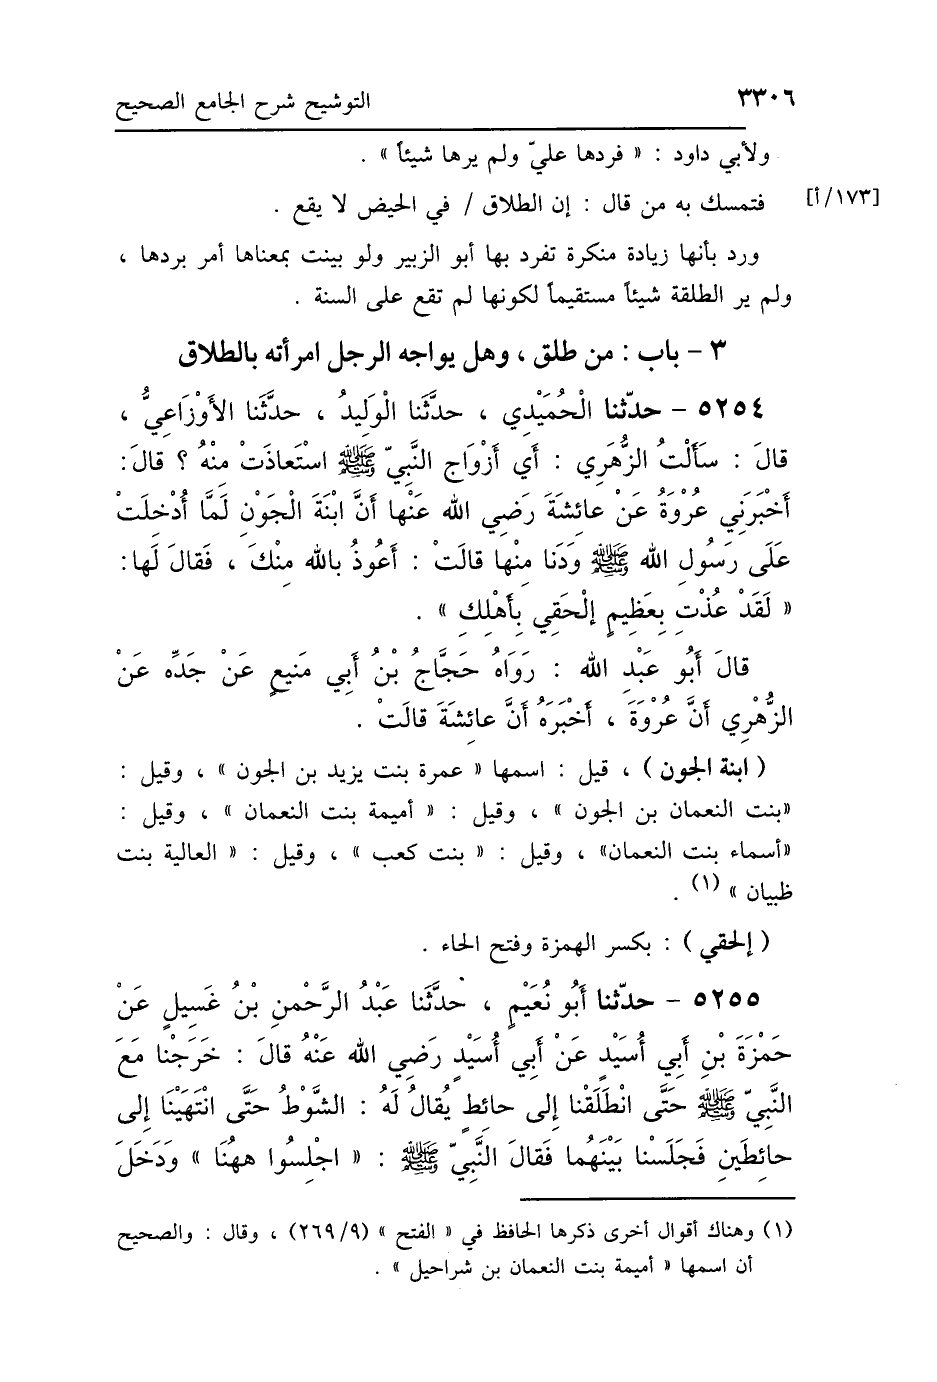 ٣٣٠٦ التوشيح شرح الجامع الصحيح
ولأبي داود : « فردها عليّ ولم يرها شيئاً » .
[١٧٣/أ] فتمسك به من قال : إن الطلاق / في الحيض لا يقع .
ورد بأنها زيادة منكرة تفرد بها أبو الزبير ولو بينت بمعناها أمر بردها ،
ولم ير الطلقة شيئاً مستقيماً لكونها لم تقع على السنة .
٣ - باب : من طلق ، وهل يواجه الرجل امرأته بالطلاق
٥٢٥٤ - حدّثنا الْحُمَيْدِي ، حدَّثَنا الْوَلِيدُ ، حدَّثَنا الأَوْزَاعِيُّ ،
قالَ : سَأَلْتُ الزُّهَرِي : أَي أَزْوَاجِ النَّبِيّ ﷺ اسْتَعاذَتْ مِنْهُ ؟ قالَ :
أَخْبَرَنِي عُرْوَةُ عَنْ عائِشَةَ رَضِي الله عَنْها أَنَّ ابْنَةَ الْجَوْنِ لَمَّا أُدْخِلَتْ
عَلَى رَسُولِ الله ﷺ وَدَنَا مِنْها قالَتْ : أَعُوذُ بالله مِنْكَ ، فَقالَ لَها :
« لَقَدْ عُذْتِ بِعَظِيمٍ إلْحَقِي بِأَهْلِكِ » .
قالَ أَبُو عَبْدِ الله : رَوَاهُ حَجَّاجُ بْنُ أَبِي مَنِيعٍ عَنْ جَدِّه عَنْ
الزُّهْرِي أَنَّ عُرْوَةَ ، أَخْبَرَهُ أَنَّ عائِشَةَ قالَتْ .
( ابنة الجون ) ، قيل : اسمها « عمرة بنت يزيد بن الجون » ، وقيل :
«بنت النعمان بن الجون » ، وقيل : « أميمة بنت النعمان » ، وقيل :
«أسماء بنت النعمان» ، وقيل : « بنت كعب » ، وقيل : « العالية بنت
ظبيان » (١) .
( إلحقي ) : بكسر الهمزة وفتح الحاء .
٥٢٥٥ - حدّثنا أَبُو نُعَيْمٍ ، حدَّثَنا عَبْدُ الرَّحْمنِ بْنُ غَسِيلٍ عَنْ
حَمْزَةَ بْنِ أَبِي أُسَيْدٍ عَنْ أَبِي أُسَيْدٍ رَضِي الله عَنْهُ قالَ : خَرَجْنا مَعَ
النَّبِيّ ﷺ حَتَّى انْطَلَقْنا إلى حائطٍ يُقالُ لَهُ : الشَّوْطُ حَتَّى انْتَهَيْنَا إلى
حائطَينِ فَجَلَسْنا بَيْنَهُما فَقالَ النَّبِيّ ﷺ : « اجْلِسُوا ههُنَا » وَدَخَلَ
(١) وهناك أقوال أخرى ذكرها الحافظ في « الفتح » (٢٦٩/٩) ، وقال : والصحيح
أن اسمها « أميمة بنت النعمان بن شراحيل » .